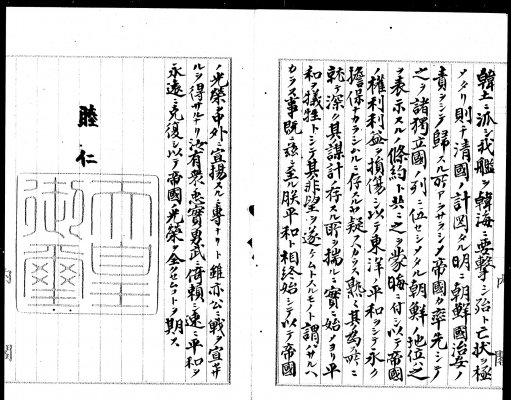 韓土ニ派シ我艦ヲ韓海ニ要撃シ殆ト亡状ヲ極
メタリ則チ清國ノ計圖タル明ニ朝鮮國治安ノ
責ヲシテ歸スル所アラサラシメ帝國カ率先シテ
之ヲ諸獨立國ノ列ニ伍セシメタル朝鮮ノ地位ハ之
ヲ表示スルノ條約ト共ニ之ヲ蒙晦ニ付シ以テ帝國
ノ權利利益ヲ損傷シ以テ東洋ノ平和ヲシテ永ク
擔保ナカラシムルニ存スルヤ疑フヘカラス熟々其ノ為ス所ニ
就テ深ク其ノ謀計ノ存スル所ヲ揣ルニ實ニ始メヨリ平
和ヲ犠牲トシテ其ノ非望ヲ遂ケムトスルモノト謂ハサルヘ
カラス事既ニ茲ニ至ル朕平和ト相終始シテ以テ帝國
ノ光榮ヲ中外ニ宣揚スルニ專ナリト雖亦公ニ戰ヲ宣セサ
ルヲ得サルナリ汝有衆ノ忠實勇武ニ倚頼シ速ニ平和ヲ
永遠ニ克復シ以テ帝國ノ光榮ヲ全クセムコトヲ期ス
睦仁
天皇
御璽
内閣